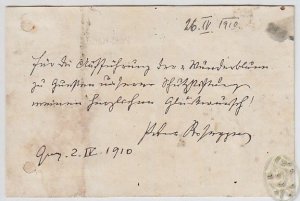 26. IV. 1910.
Für die Aufführung der „Wunderblume
zu Gunsten unserer Schutzstiftung
meinen herzlichen Glückwunsch!
Peter Rosegger
Graz, 2. IV. 1910